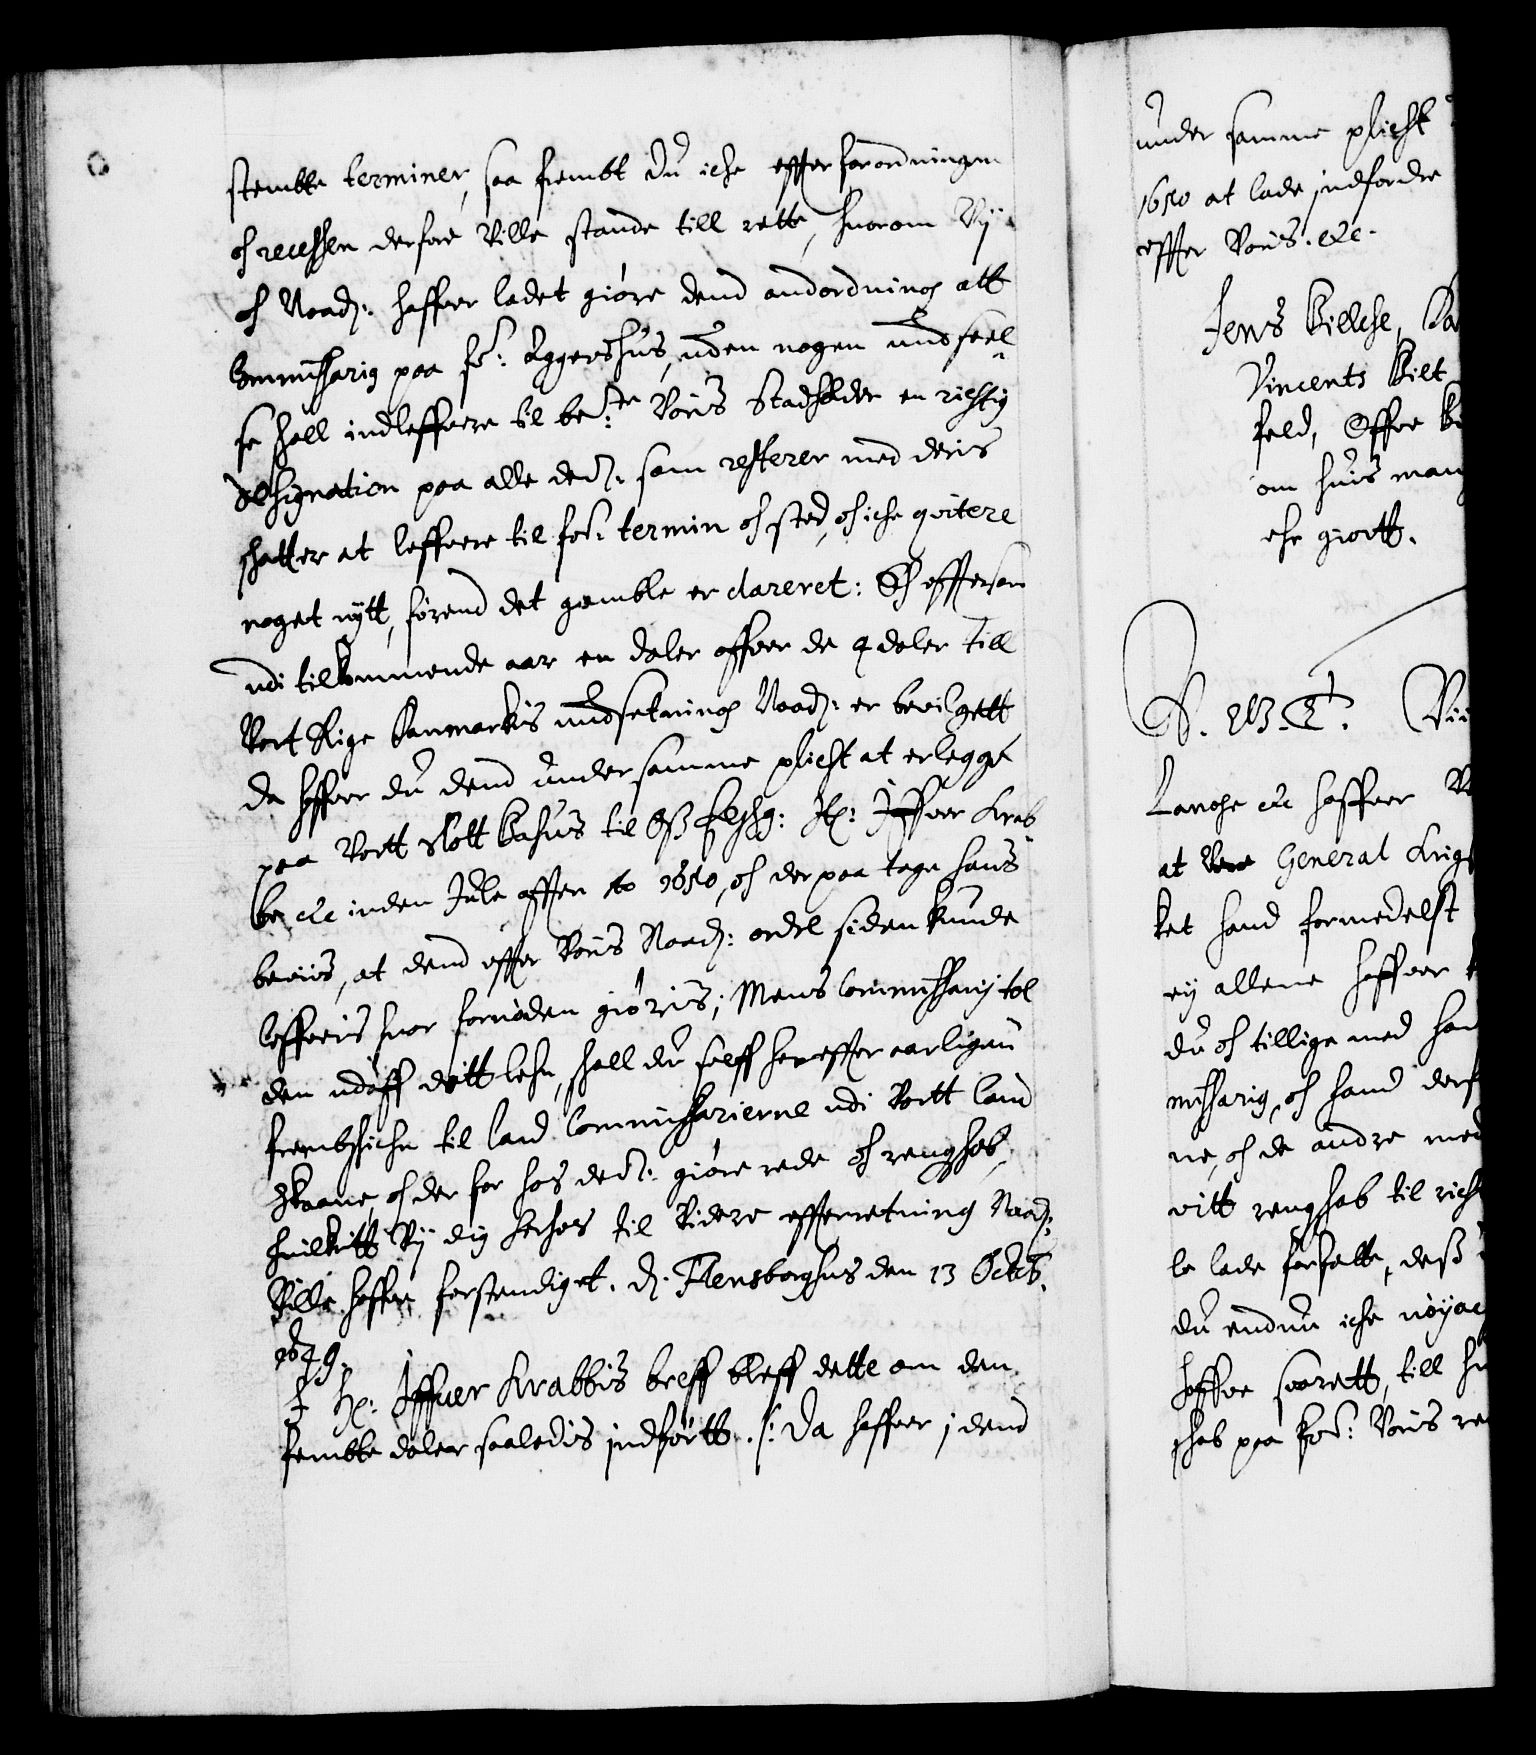 stembte terminer, saa frembt du iche effter forordningen
och recessen derfore ville stande till rette, huorom Vij
och Naad: haffuer ladet giöre dend andordning att
Commissarig paa fr: Aggershus, uden nogen undseel¬
se skall indleffuere til be:te Voris Stadholder en richtig
designation paa alle de: som resterer med deris
skatter at leffuere til for: termin och sted, och iche qvitere
noget nytt, förend det gamble er clareret: Och efftersom
udi tilkommende aar en daler offuer de 4 daler till
Vort Rige Danmarkis undsetning Naad: er bevilgett
da haffuer du dend under samme plicht at erlegge
paa Vortt slott Bahus til Oss Elskg: Hr: Iffuer Krab¬
be etc inden Jule afften Ao 1650, och der paa tage hans
beviis, at dend effter Voris Naad: ordre siden kunde
leffueris huor fornöden giöris; Mens Commissarij tol
den udaff ditt lehn, skall du selff hereffter aarligen
frembskiche til land Commissarierne udi Vortt land
Skaane, och der for hos de: giöre rede och rengskab,
huilkitt Vij dig herhos til videre effterretning Naad:
Ville haffue forstendiget. d. Flensborghus den 13 Octob.
1649.
I Hr: Iffuer Krabbis breff bleff dette om den
fembte daler saaledis indförtt. /: Da haffuer i dend
under samme plicht
1650 at lade indfordre
effter Voris. etc.
Jens Bilche,
Vincents Bilt
feld, Offue
om huis man
che giortt.
S. W. T. Vii
Lange etc haffuer
at General Krigs
ket hand formedelst
ej allene haffuer
du och tillige med han
missarig, och hand derf
ne, och de andre med
vitt rengskab til richt
le lade forfatte, dess
du endnu iche nöyac
haffue svarett, till hu
skab paa for: Voris re